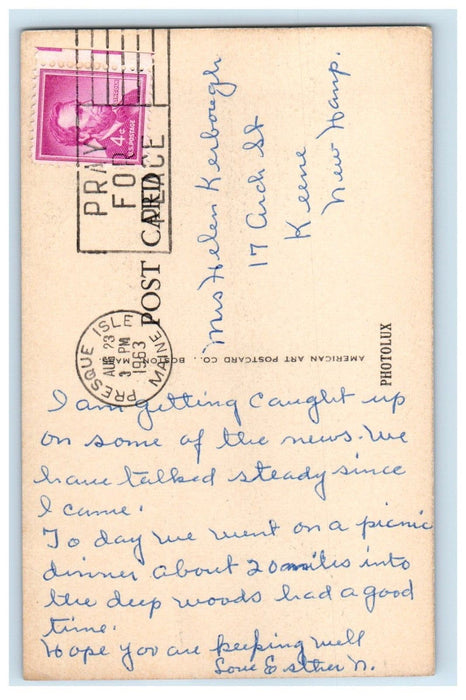 LINCOLN
4¢
U.S. POSTAGE
PRAY
FOR
PEACE
PRESQUE ISLE
AUG 23
3 PM
1963
MAINE
POST CARD
Mrs Helen Kerbough
17 Arch St
Keene
New Hamp.
AMERICAN ART POSTCARD CO., BOSTON, MASS.
PHOTOLUX
I am getting caught up
on some of the news. We
have talked steady since
I came.
To day we went on a picnic
dinner about 20 miles into
the deep woods had a good
time.
Hope you are keeping well
Love Esther N.